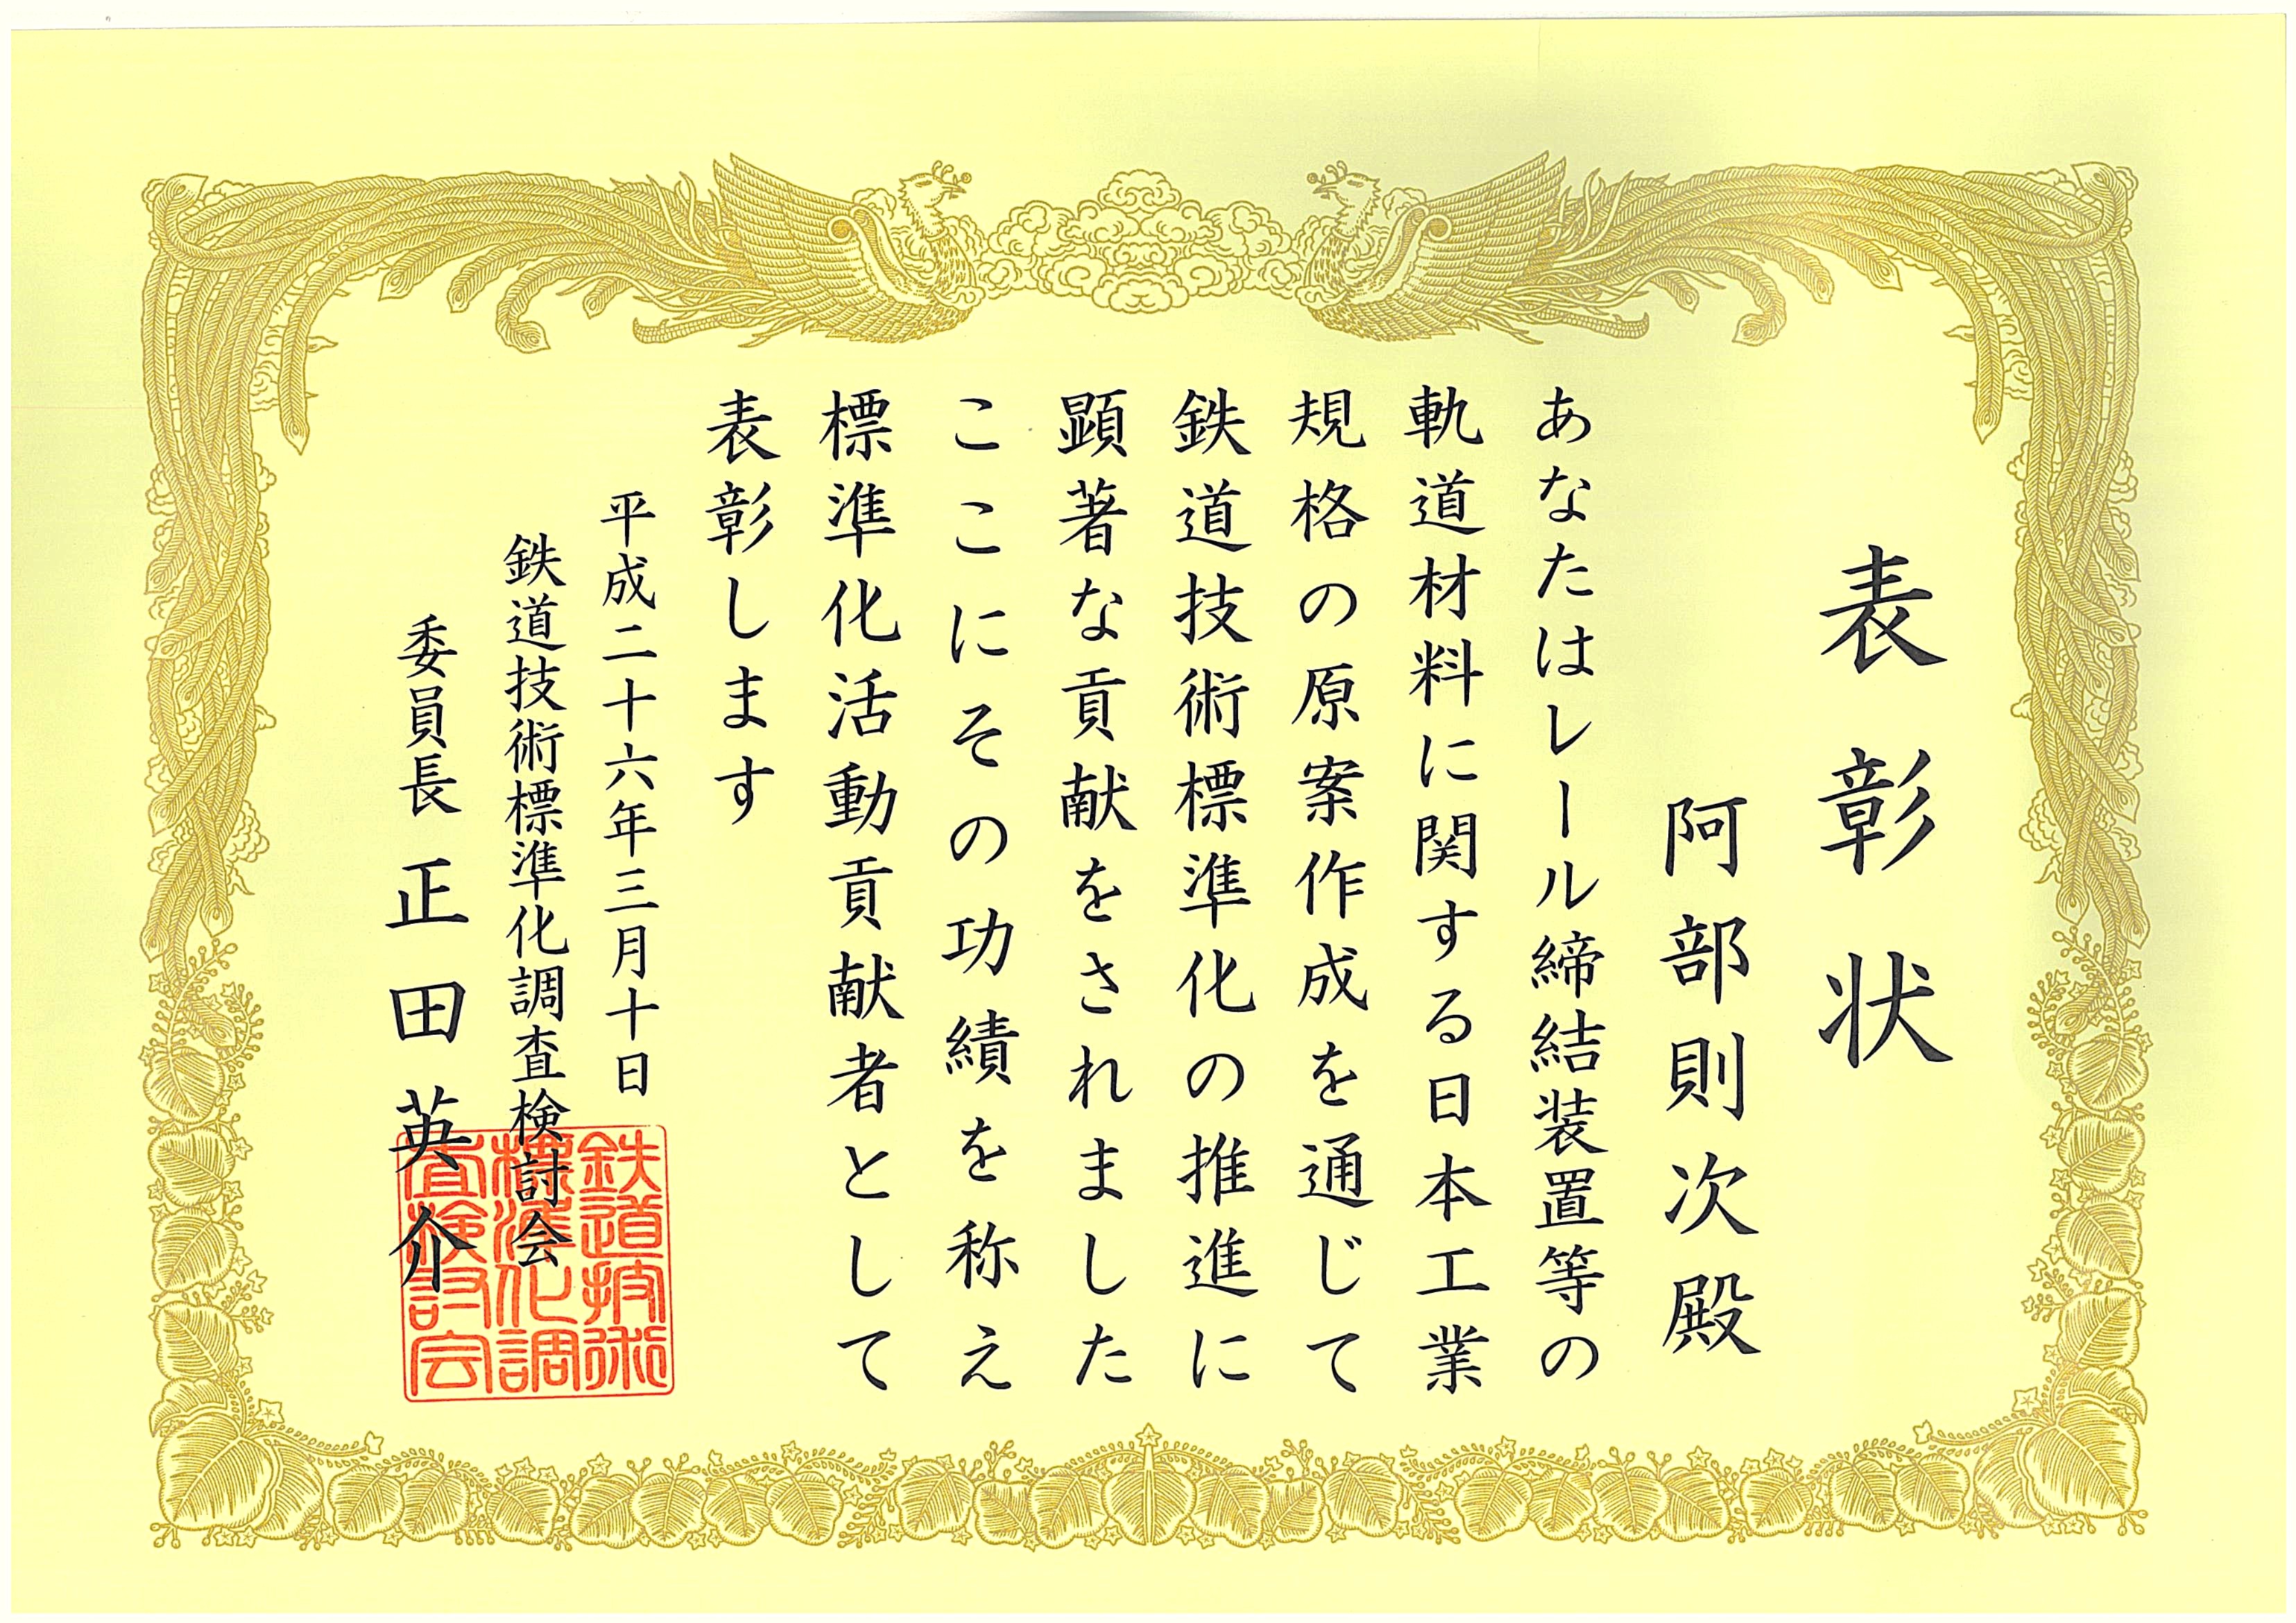 表彰状
阿部則次殿
あなたはレール締結装置等の
軌道材料に関する日本工業
規格の原案作成を通じて
鉄道技術標準化の推進に
顕著な貢献をされました
ここにその功績を称え
標準化活動貢献者として
表彰します
平成二十六年三月十日
鉄道技術標準化調査検討会
委員長 正田英介
鉄道技術
標準化調
査検討会